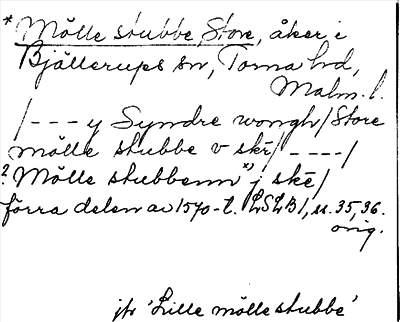 * Mölle stubbe, Store, åker i
Bjällerups sn, Torna hd,
Malm. l.
/--- y Syndre wongh/Store
mölle stubbe v skē/ ----/
? Mölle stubbenn x) j skē/
förra delen av 1570-t. LSLB 1, ss. 35, 36.
orig.
jfr 'Lille mölle stubbe'